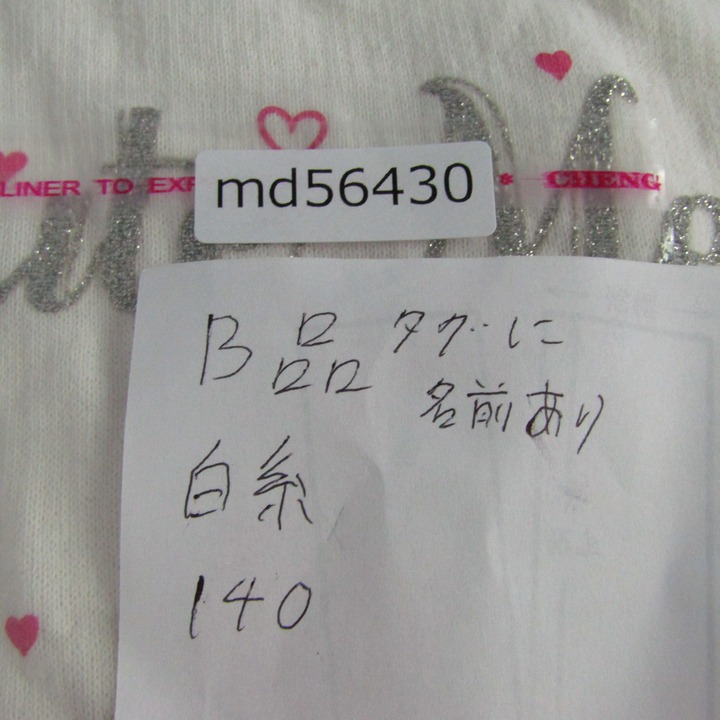 LINER TO EXP
md56430
* CHENG
B品 タグに
名前あり
白糸
140